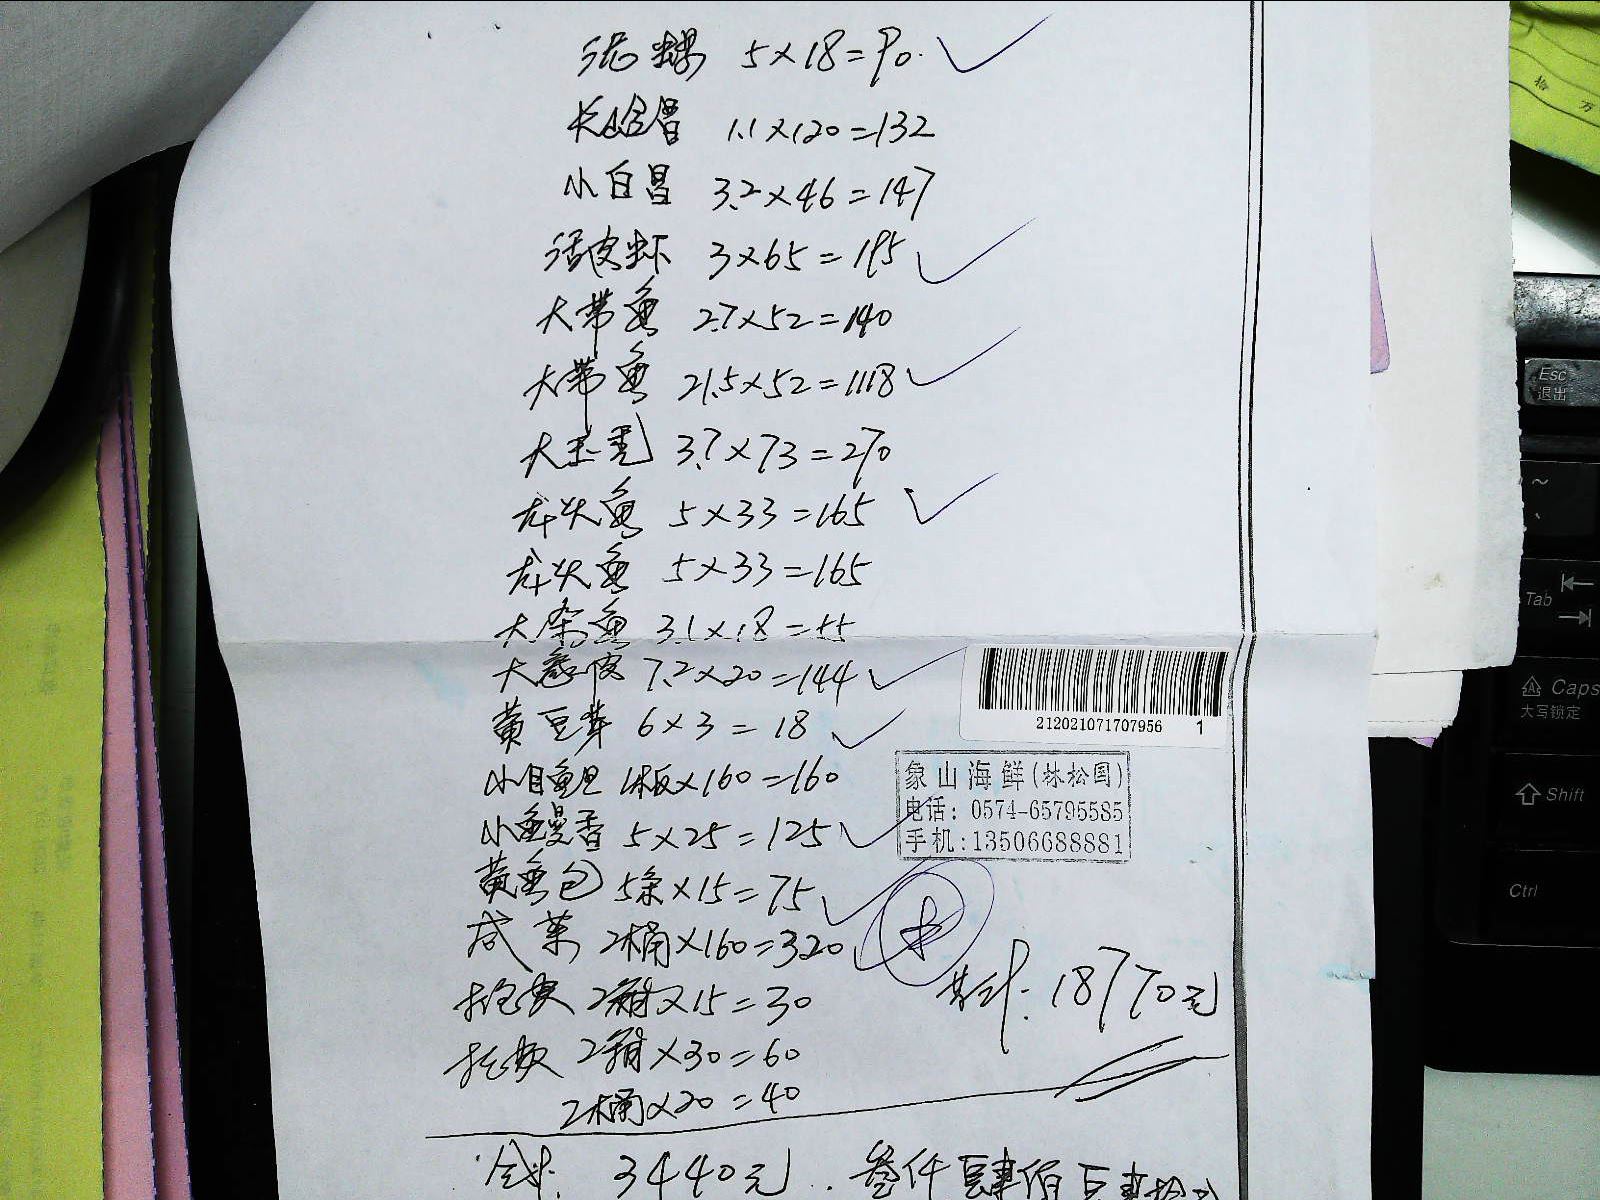 泥螺 5×18=90.
长山含昌 1.1×120=132
小白昌 3.2×46=147
活皮虾 3×65=195
大带鱼 2.7×52=140
大带鱼 21.5×52=1118
大玉秃 3.7×73=270
龙头鱼 5×33=165
龙头鱼 5×33=165
大杂鱼 3.1×18=55
大葱皮 7.2×20=144
黄豆芽 6×3=18
小目鱼旦 1板×160=160
小鳗香 5×25=125
黄鱼包 5条×15=75
咸菜 2桶×160=320
托费 2箱×15=30
托费 2箱×30=60
2桶×20=40
合计: 3440元. 叁仟肆佰
212021071707956 1
象山海鲜(林松国)
电话: 0574-65795585
手机:13506688881
共计: 18770元
拾 万
Esc
退出
~
Tab
Caps
大写锁定
Shift
Ctrl